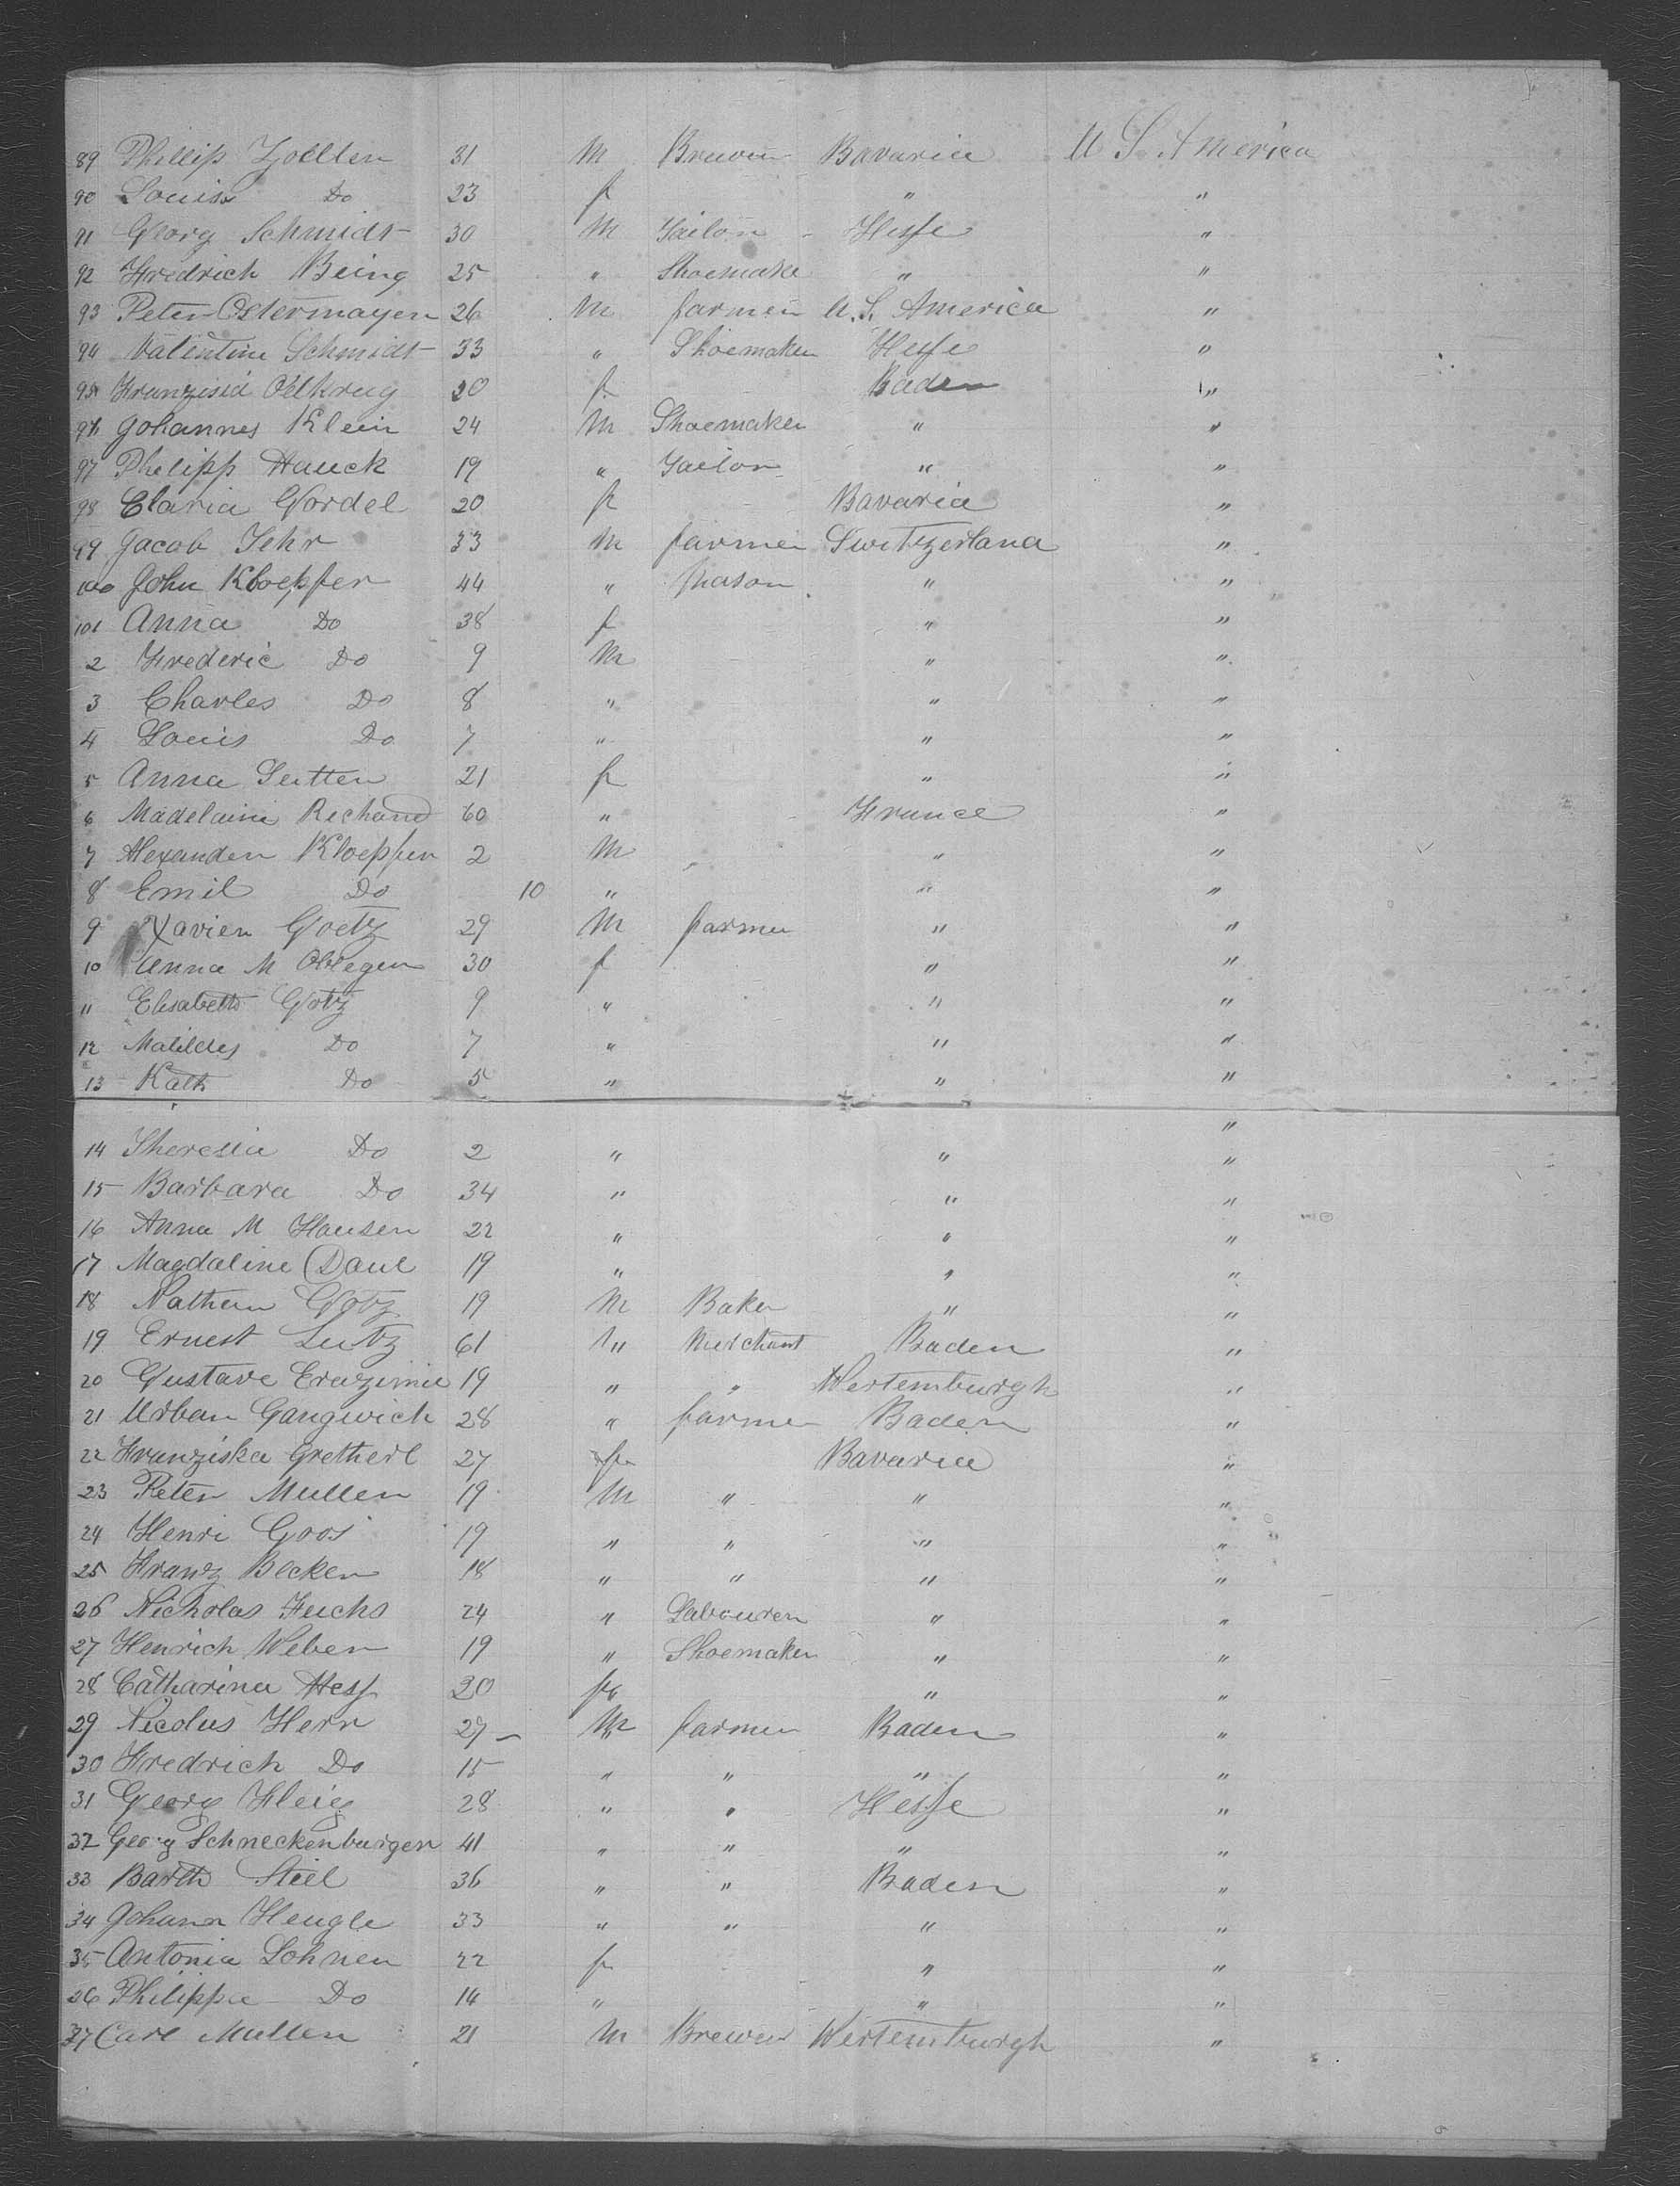 89 Phillip Zoellen 31 M Brewer Bavaria U S America
90 Louisa Do 23 f " "
91 Georg Schmidt 30 M Tailor Hesse "
92 Fredrich Being 25 " Shoemake " "
93 Peter Ostermayer 26 M farmer U.S. America "
94 Valentine Schmidt 33 " Shoemaker Hesse "
95 Oelkrug 20 f Baden "
96 Johannes Klein 24 M Shoemaker " "
97 Philipp Hauck 19 " Tailor " "
98 Claria Gordel 20 f Bavaria "
99 Jacob Jehr 33 M farmer Switzerland "
100 John Kloepfer 44 " Mason " "
101 Anna Do 38 f " "
2 Frederic Do 9 M " "
3 Charles Do 8 " " "
4 Louis Do 7 " " "
5 Anna Sutter 21 f " "
6 Madelaine Richard 60 " France "
7 Alexander Kloepfer 2 M " "
8 Emil Do 10 " " "
9 Xavier Goetz 29 M farmer " "
10 Anna M 30 f " "
11 Elisabeth Gotz 9 " " "
12 Matildes Do 7 " " "
13 Kath Do 5 " " "
14 Theresia Do 2 " " "
15 Barbara Do 34 " " "
16 Anna M Hauser 22 " " "
17 Magdaline Daul 19 " " "
18 Gotz 19 M Baker " "
19 Ernest Lutz 61 " Merchant Baden "
20 Gustave 19 " " Wertemburgh "
21 Urban Gangwich 28 " farmer Baden "
22 Franziska Gretherl 27 f Bavaria "
23 Peter Muller 19 M " " "
24 Henri Goos 19 " " " "
25 Franz Becker 18 " " " "
26 Nicholas Fuchs 24 " Labourer " "
27 Henrich Weber 19 " Shoemaker " "
28 Catharina Hess 20 f " "
29 Nicolus Herr 27 M farmer Baden "
30 Fredrich Do 15 " " " "
31 Georg Fleig 28 " " Hesse "
32 Georg Schneckenburger 41 " " " "
33 Barth Stiel 36 " " Baden "
34 Johann Hengle 33 " " " "
35 Antonia Lohner 22 f " "
36 Philippa Do 14 " " "
37 Carl Muller 21 M Brewer Wertemburgh "